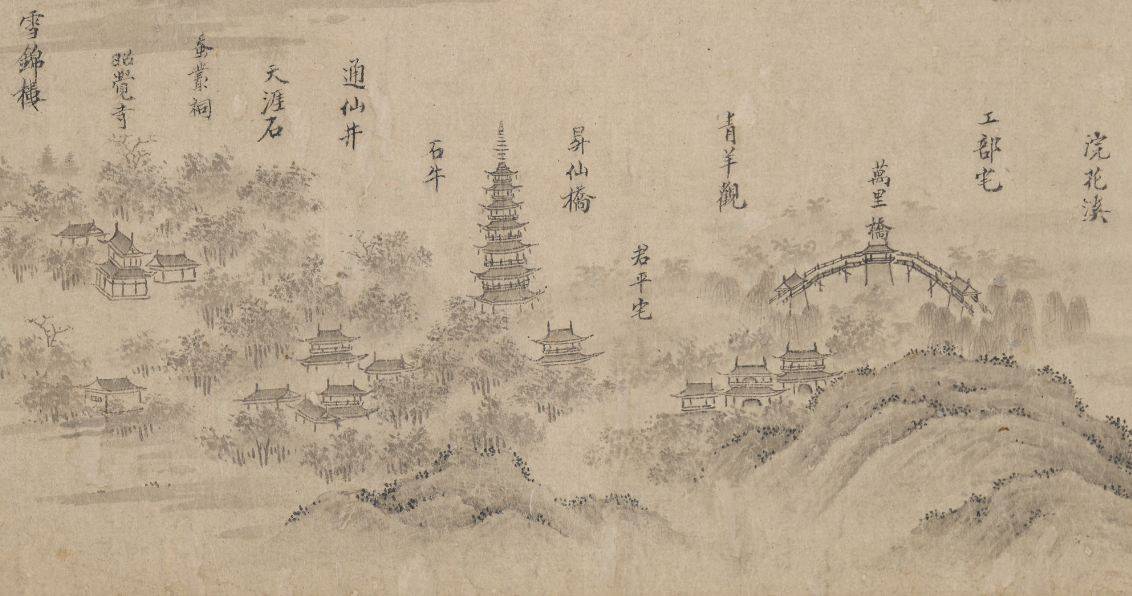 浣花溪
工部宅
萬里橋
青羊觀
君平宅
昇仙橋
石牛
通仙井
天涯石
蚕叢祠
昭覺寺
雪錦樓